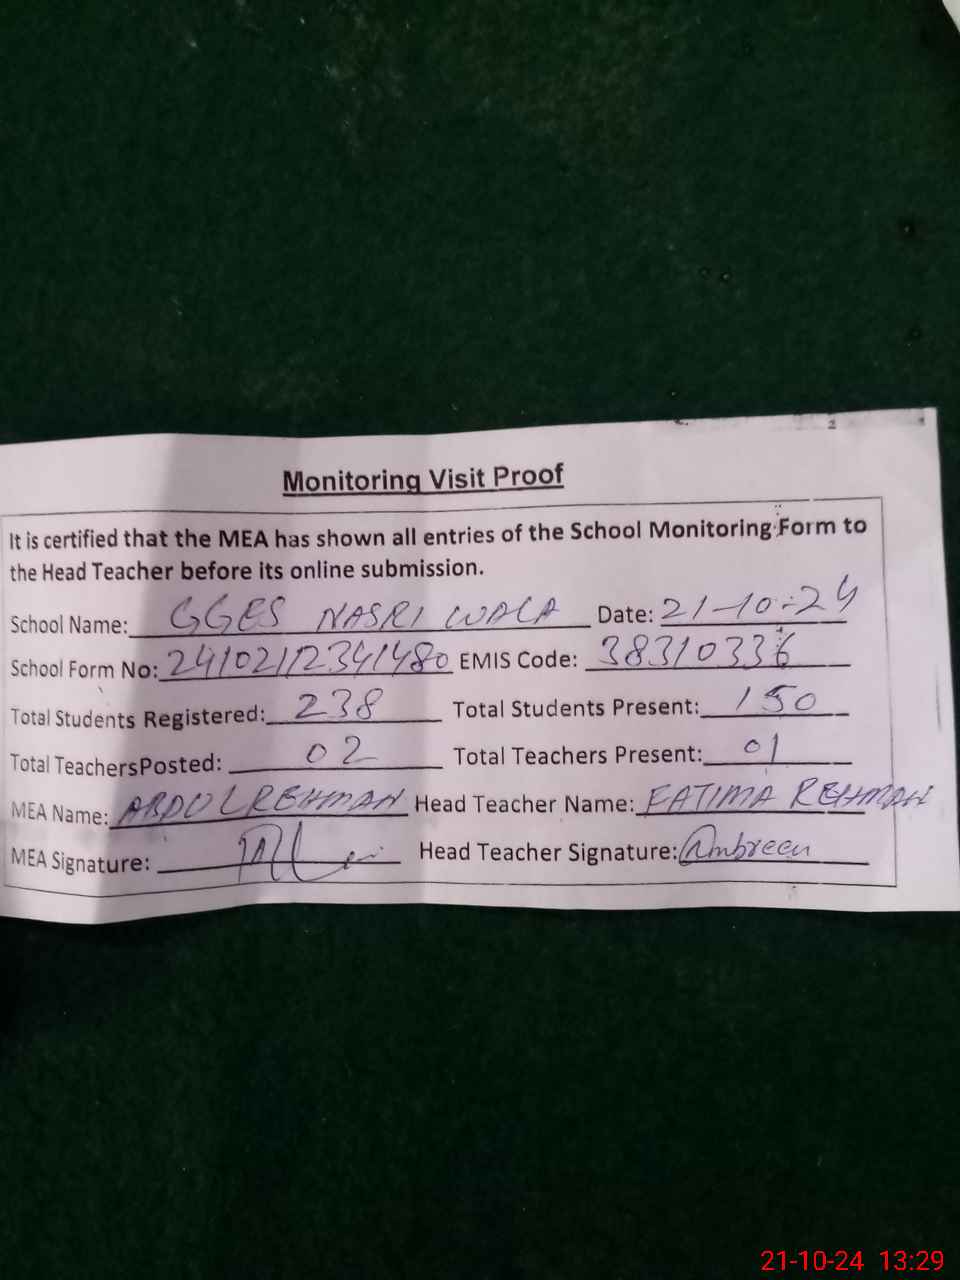 Monitoring Visit Proof
It is certified that the MEA has shown all entries of the School Monitoring Form to
the Head Teacher before its online submission.
School Name: GGES NASRI WALA Date: 21-10-24
School Form No: 24102112341480 EMIS Code: 38310336
Total Students Registered: 238 Total Students Present: 150
Total TeachersPosted: 02 Total Teachers Present: 01
MEA Name: ABDUL REHMAN Head Teacher Name: FATIMA REHMAN
MEA Signature: Head Teacher Signature: Ambreen
21-10-24 13:29